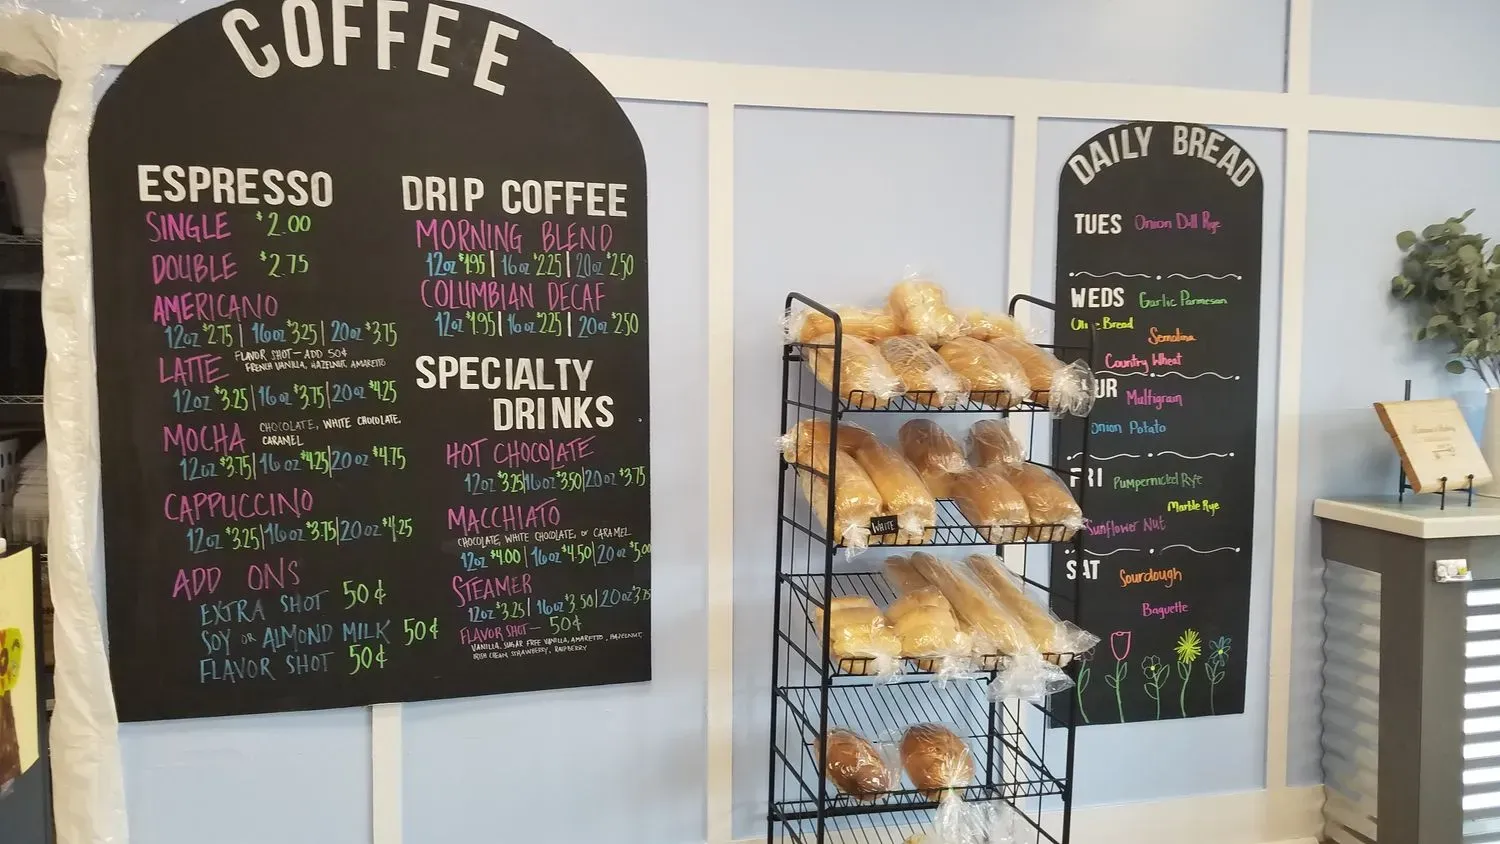 COFFEE
ESPRESSO
SINGLE $2.00
DOUBLE $2.75
AMERICANO
12oz $2.75 | 16oz $3.25 | 20oz $3.75
LATTE FLAVOR SHOT - ADD 50¢
FRENCH VANILLA, HAZELNUT, AMARETTO
12oz $3.25 | 16oz $3.75 | 20oz $4.25
MOCHA CHOCOLATE, WHITE CHOCOLATE,
CARAMEL
12oz $3.75 | 16oz $4.25 | 20oz $4.75
CAPPUCCINO
12oz $3.25 | 16oz $3.75 | 20oz $4.25
ADD ONS
EXTRA SHOT 50¢
SOY OR ALMOND MILK 50¢
FLAVOR SHOT 50¢
DRIP COFFEE
MORNING BLEND
12oz $1.95 | 16oz $2.25 | 20oz $2.50
COLUMBIAN DECAF
12oz $1.95 | 16oz $2.25 | 20oz $2.50
SPECIALTY
DRINKS
HOT CHOCOLATE
12oz $3.25 | 16oz $3.50 | 20oz $3.75
MACCHIATO
CHOCOLATE, WHITE CHOCOLATE, OR CARAMEL
12oz $4.00 | 16oz $4.50 | 20oz $5.00
STEAMER
12oz $3.25 | 16oz $3.50 | 20oz $3.75
FLAVOR SHOT - 50¢
VANILLA, SUGAR FREE VANILLA, AMARETTO, HAZELNUT,
IRISH CREAM, STRAWBERRY, RASPBERRY
WHITE
DAILY BREAD
TUES Onion Dill Rye
WEDS Garlic Parmesan
Olive Bread
Semolina
Country Wheat
UR Multigrain
Onion Potato
FRI Pumpernickel Rye
Marble Rye
Sunflower Nut
SAT Sourdough
Baguette